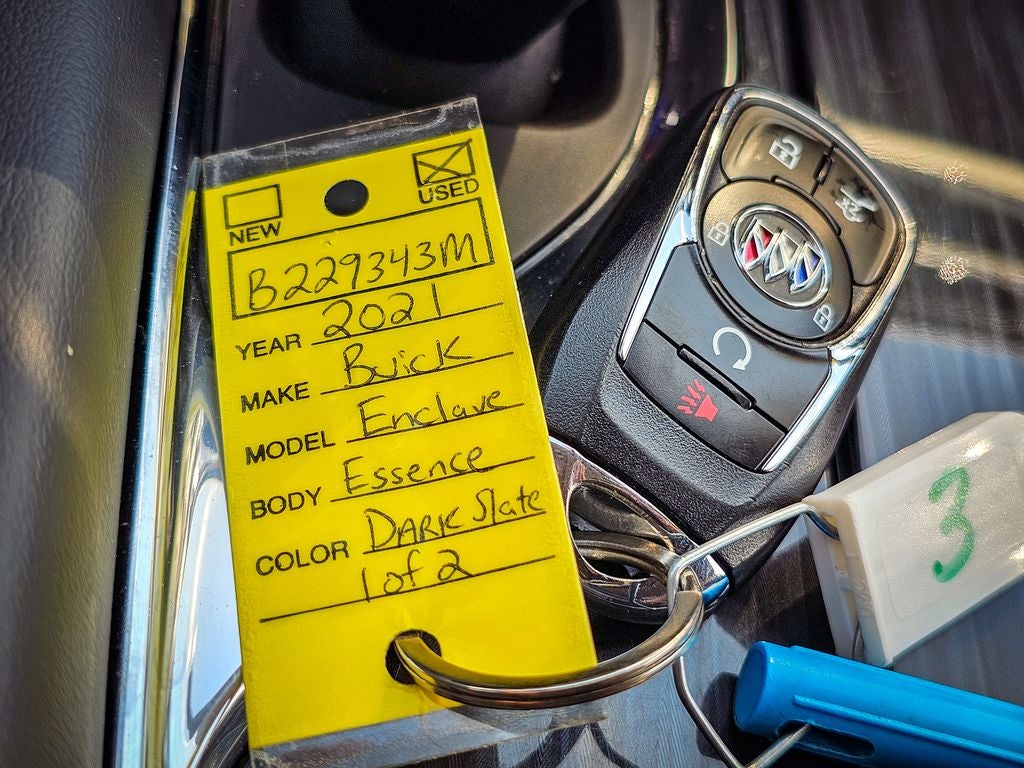 NEW
USED
B229343M
YEAR 2021
MAKE Buick
MODEL Enclave
BODY Essence
COLOR DARK Slate
1 of 2
3